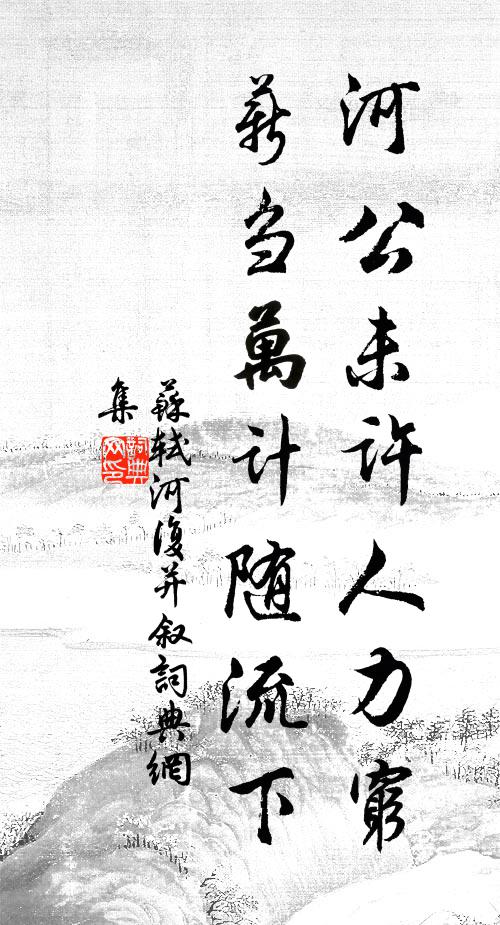 河公未許人力窮
薪芻萬計随流下
蘇軾河復并叙詞典網
集